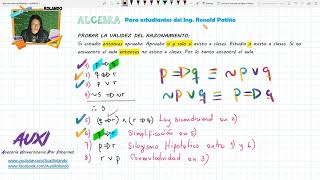 ROLANDO
ALGEBRA Para estudiantes del Ing. Ronald Patiño
PROBAR LA VALIDEZ DEL RAZONAMIENTO:
Si estudio entonces apruebo. Apruebo si y solo si asisto a clases. Estudio o asisto a clases. Si no
encuentro el aula entonces no asisto a clases. Por lo tanto encontré el aula.
1)
2)
3)
4) ∼s ⇒ ∼r
∴ s
p ⇒ q ≡ ∼p ∨ q
p ⇒ q ≡ ∼p ∨ q
5) (q ⇒ r) ∧ (r ⇒ q) Ley bicondicional en 2)
6) Simplificación en 5)
7) p ⇒ r Silogismo Hipotético entre 1) y 6)
8) r ∨ p Conmutatividad en 3)
AUXI
Asesoría Universitaria Por Internet
www.youtube.com/AuxiRolando
www.facebook.com/AuxiRolando